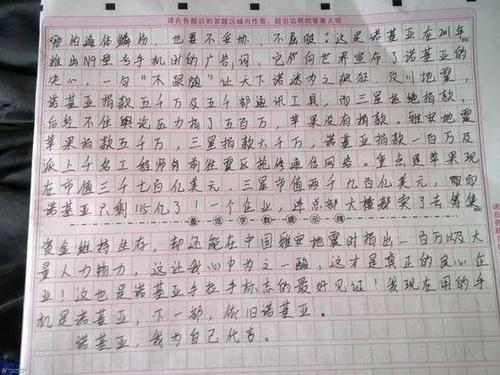 请在各题目的答题区域内作答，超出边框的答案无效
哪怕遍体鳞伤，也要不妥协，不屈服！这是诺基亚在2011年
推出N9里当手机时的广告词，它仿向世界宣布了诺基亚的
决心，一句“不跟随”让天下诺迷为之疯狂，汶川地震，
诺基亚捐款五千万及五千部通讯工具，而三星拒绝捐款，
后经不住舆论压力捐了五百万，苹果没有捐款。雅安地震
苹果捐款五千万，三星捐款六千万，诺基亚捐款一百万及
派上千名工程师前往震区抢修通信网络。重点是苹果现
在市值三千七百亿美元，三星市值两千九百亿美元，而
诺基亚只剩115亿了！一个企业，连总部大楼都卖了去筹集
最低字数提示线
资金维持生存，却还能在中国雅安地震时捐出一百万以及大
量人力物力，这让我心中为之一酸，这才是真正的良心企
业！这也是诺基亚手拉手标志的最好见证！我现在用的手
机是诺基亚，下一部，依旧诺基亚。
诺基亚，我为自己代言。